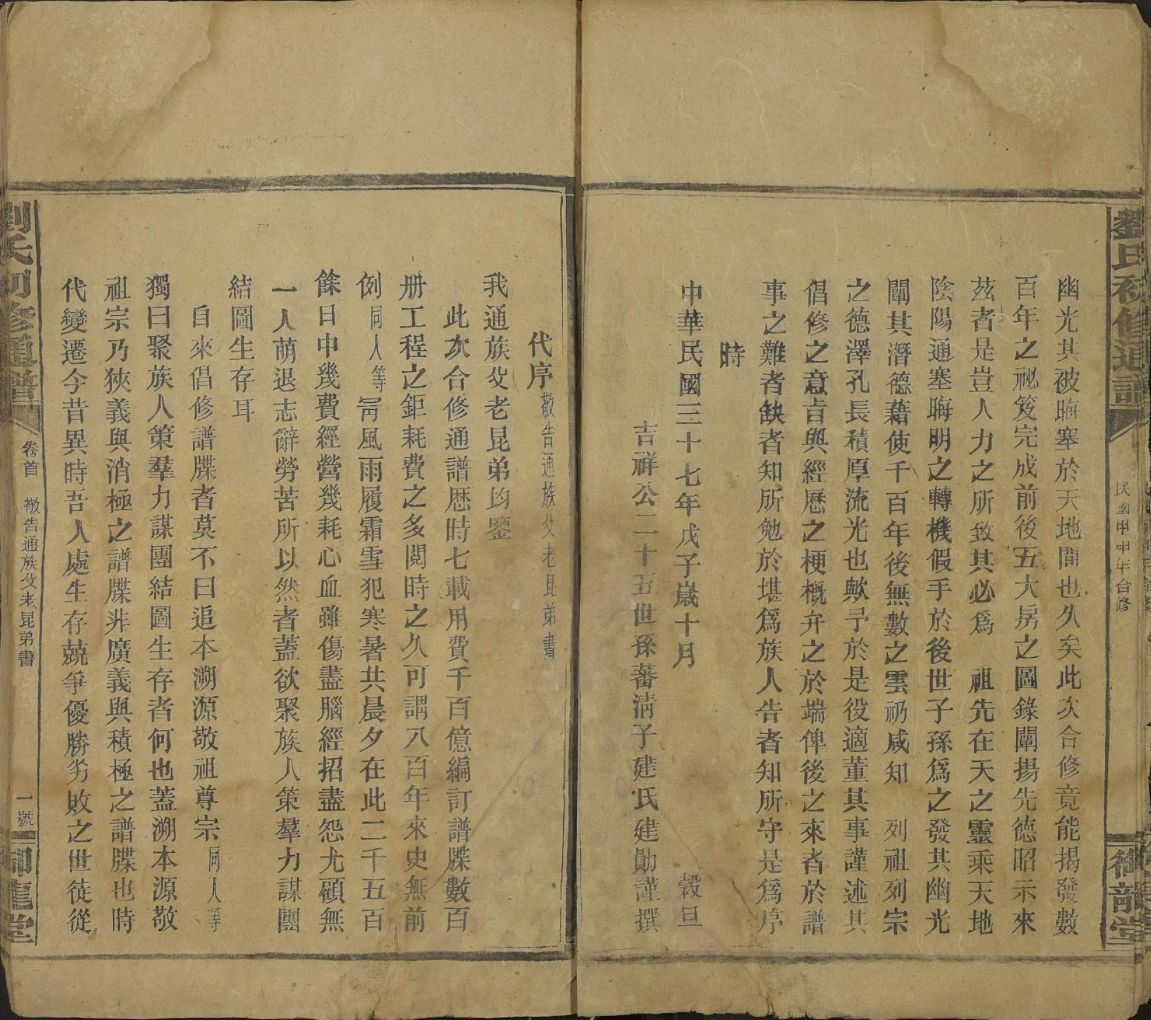 劉氏初修通譜
民國甲申年合修
御龍堂
幽光其被晦塞於天地間也久矣此次合修竟能揭發數
百年之祕笈完成前後五大房之圖錄闡揚先德昭示來
茲者是豈人力之所致其必為 祖先在天之靈乘天地
陰陽通塞晦明之轉機假手於後世子孫為之發其幽光
闡其潛德藉使千百年後無數之雲礽咸知 列祖列宗
之德澤孔長積厚流光也歟予於是役適董其事謹述其
倡修之意旨與經歷之梗概弁之於端俾後之來者於譜
事之難者缺者知所勉於堪為族人告者知所守是為序
時
中華民國三十七年戊子歲十月 穀旦
吉祥公二十五世孫蕃清子建氏建勛謹撰
代序敬告通族父老昆弟書
我通族父老昆弟均鑒
此次合修通譜歷時七載用費千百億編訂譜牒數百
册工程之鉅耗費之多閱時之久可謂八百年來史無前
例同人等冐風雨履霜雪犯寒暑共晨夕在此二千五百
餘日中幾費經營幾耗心血雖傷盡腦經招盡怨尤顧無
一人萌退志辭勞苦所以然者蓋欲聚族人策羣力謀團
結圖生存耳
自來倡修譜牒者莫不曰追本溯源敬祖尊宗同人等
獨曰聚族人策羣力謀團結圖生存者何也蓋溯本源敬
祖宗乃狹義與消極之譜牒非廣義與積極之譜牒也時
代變遷今昔異時吾人處生存競爭優勝劣敗之世徒從
劉氏初修通譜
卷首 敬告通族父老昆弟書
一號
御龍堂